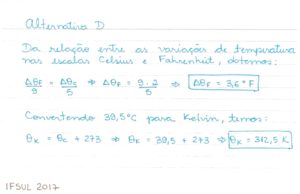 Alternativa D
Da relação entre as variações de temperatura
nas escalas Celsius e Fahrenheit, obtemos:
ΔθF/9 = ΔθC/5 ⇒ ΔθF = 9·2/5 ⇒ ΔθF = 3,6 °F
Convertendo 39,5°C para Kelvin, temos:
θK = θC + 273 ⇒ θK = 39,5 + 273 ⇒ θK = 312,5 K
IFSUL 2017